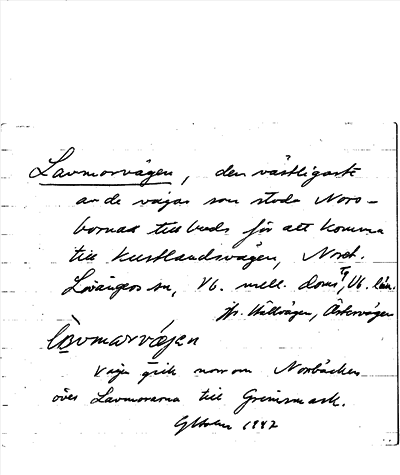 Lavmorvägen, den västligaste
av de vägar som stodo Nors-
bornas till buds för att komma
till kustlandsvägen, Nord.
Lövångers sn, Vb. mell. doms, Vb. län.
jfr. Västvägen, Östervägen
lavmarvägen
väge gick norrom Norbäcken
över Lavmorarna till Grimsmark.
GHolm 1942